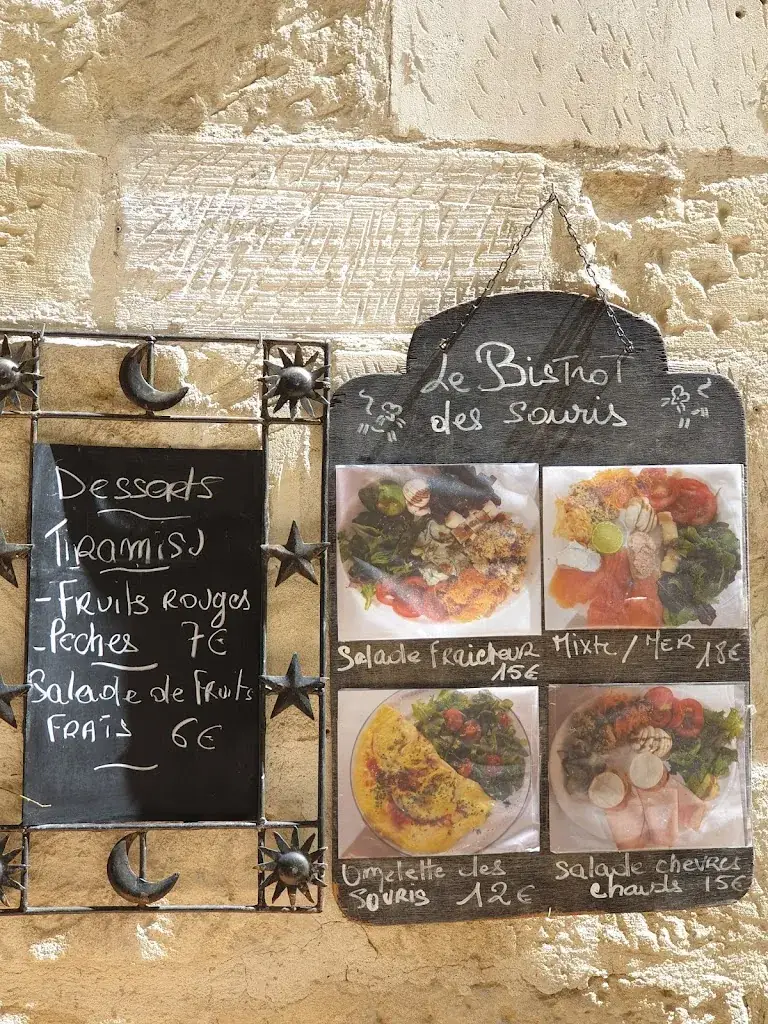 Desserts
Tiramisu
- Fruits Rouges
- Pêches 7€
Salade de Fruits
Frais 6€
Le Bistrot
des souris
Salade Fraicheur
15€
Mixte / Mer 18€
Omelette des
Souris 12€
Salade chevres
chauds 15€